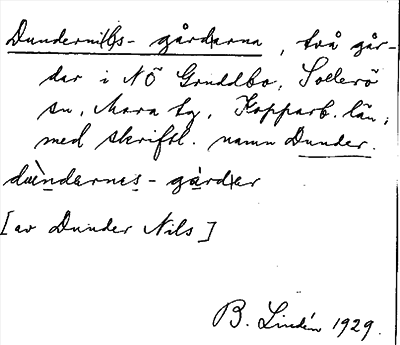 Dundernils-gårdarna, två går-
dar i NÖ Gruddbo, Sollerö
sn, Mora tg, Kopparb. län,
med skriftl. namn Dunder.
dùndernes-gárdər
[av Dunder Nils]
B. Lindén 1929.